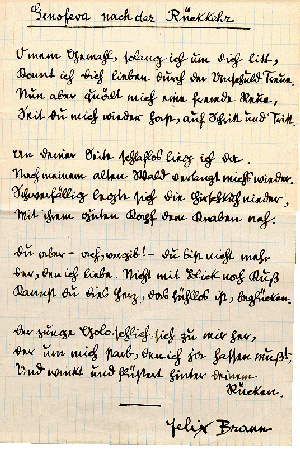 Genofeva nach der Rückkehr
O mein Gemahl, solang ich um dich litt,
Konnt ich dich lieben durch der Unschuld Treue.
Nun aber quält mich eine fremde Reue,
Seit du mich wieder hast, auf Schritt und Tritt.
An deiner Seite schlaflos lieg ich da.
Nach meinem alten Wald verlangt mich's wieder.
Schwerfällig legte sich die Hirschkuh nieder,
Mit ihrem guten Kopf dem Knaben nah.
Du aber - ach, vergib! - du bist nicht mehr
der, den ich liebe. Nicht mit Blick noch Kuß
Kannst du dies Herz, das fühllos ist, beglücken.
Der junge Golo schlich sich zu mir her,
der um mich starb, den ich hassen muß,
Und winkt und flüstert hinter deinem
Rücken.
Felix Braun